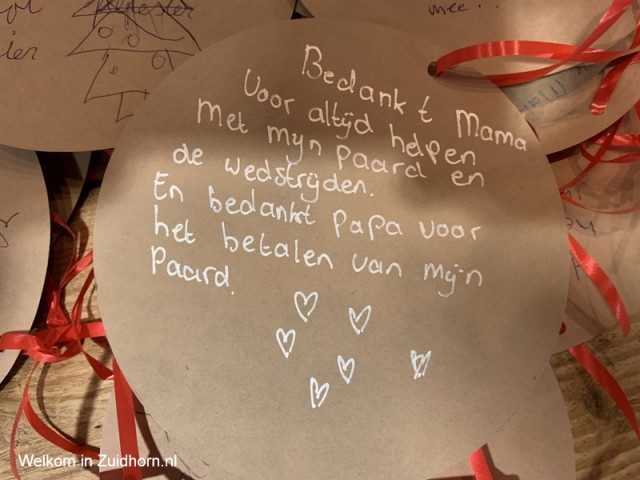 mee..
Bedankt Mama
voor altijd helpen
Met mijn paard en
de wedstrijden.
En bedankt papa voor
het betalen van mijn
paard.
Welkom in Zuidhorn.nl